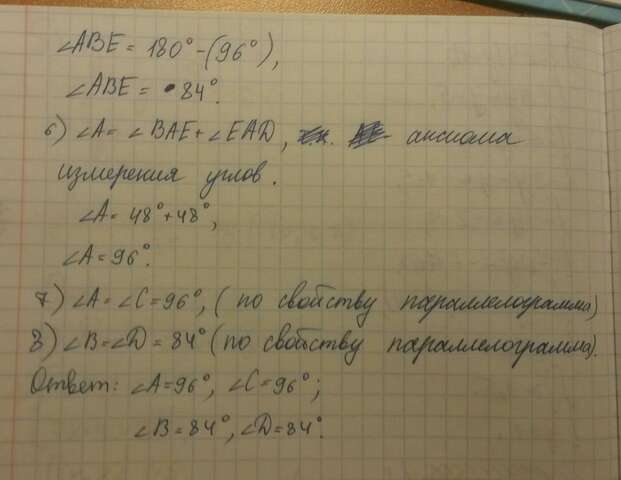 ∠ABE = 180° - (96°),
∠ABE = 84°.
6) ∠A = ∠BAE + ∠EAD, аксиома
измерения углов.
∠A = 48° + 48°,
∠A = 96°.
7) ∠A = ∠C = 96°, ( по свойству параллелограмма)
8) ∠B = ∠D = 84° (по свойству параллелограмма).
Ответ: ∠A = 96°, ∠C = 96°;
∠B = 84°, ∠D = 84°.